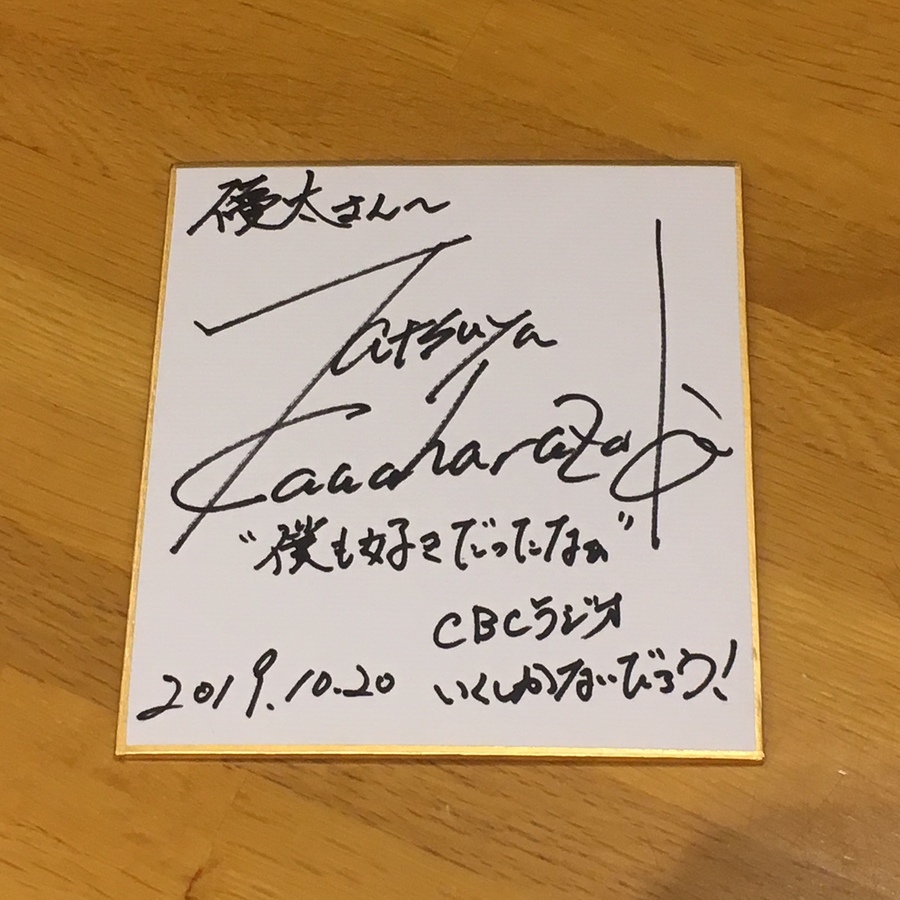 優太さんへ
Tatsuya
Kawaharazaki
"僕も好きだったなぁ"
CBCラジオ
2019.10.20 いくしかないだろう!